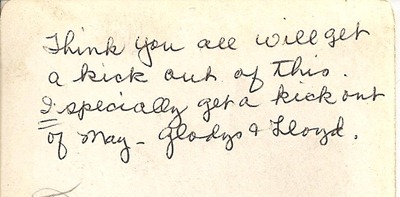 Think you all will get
a kick out of this.
I specially get a kick out
of May - Gladys & Lloyd.